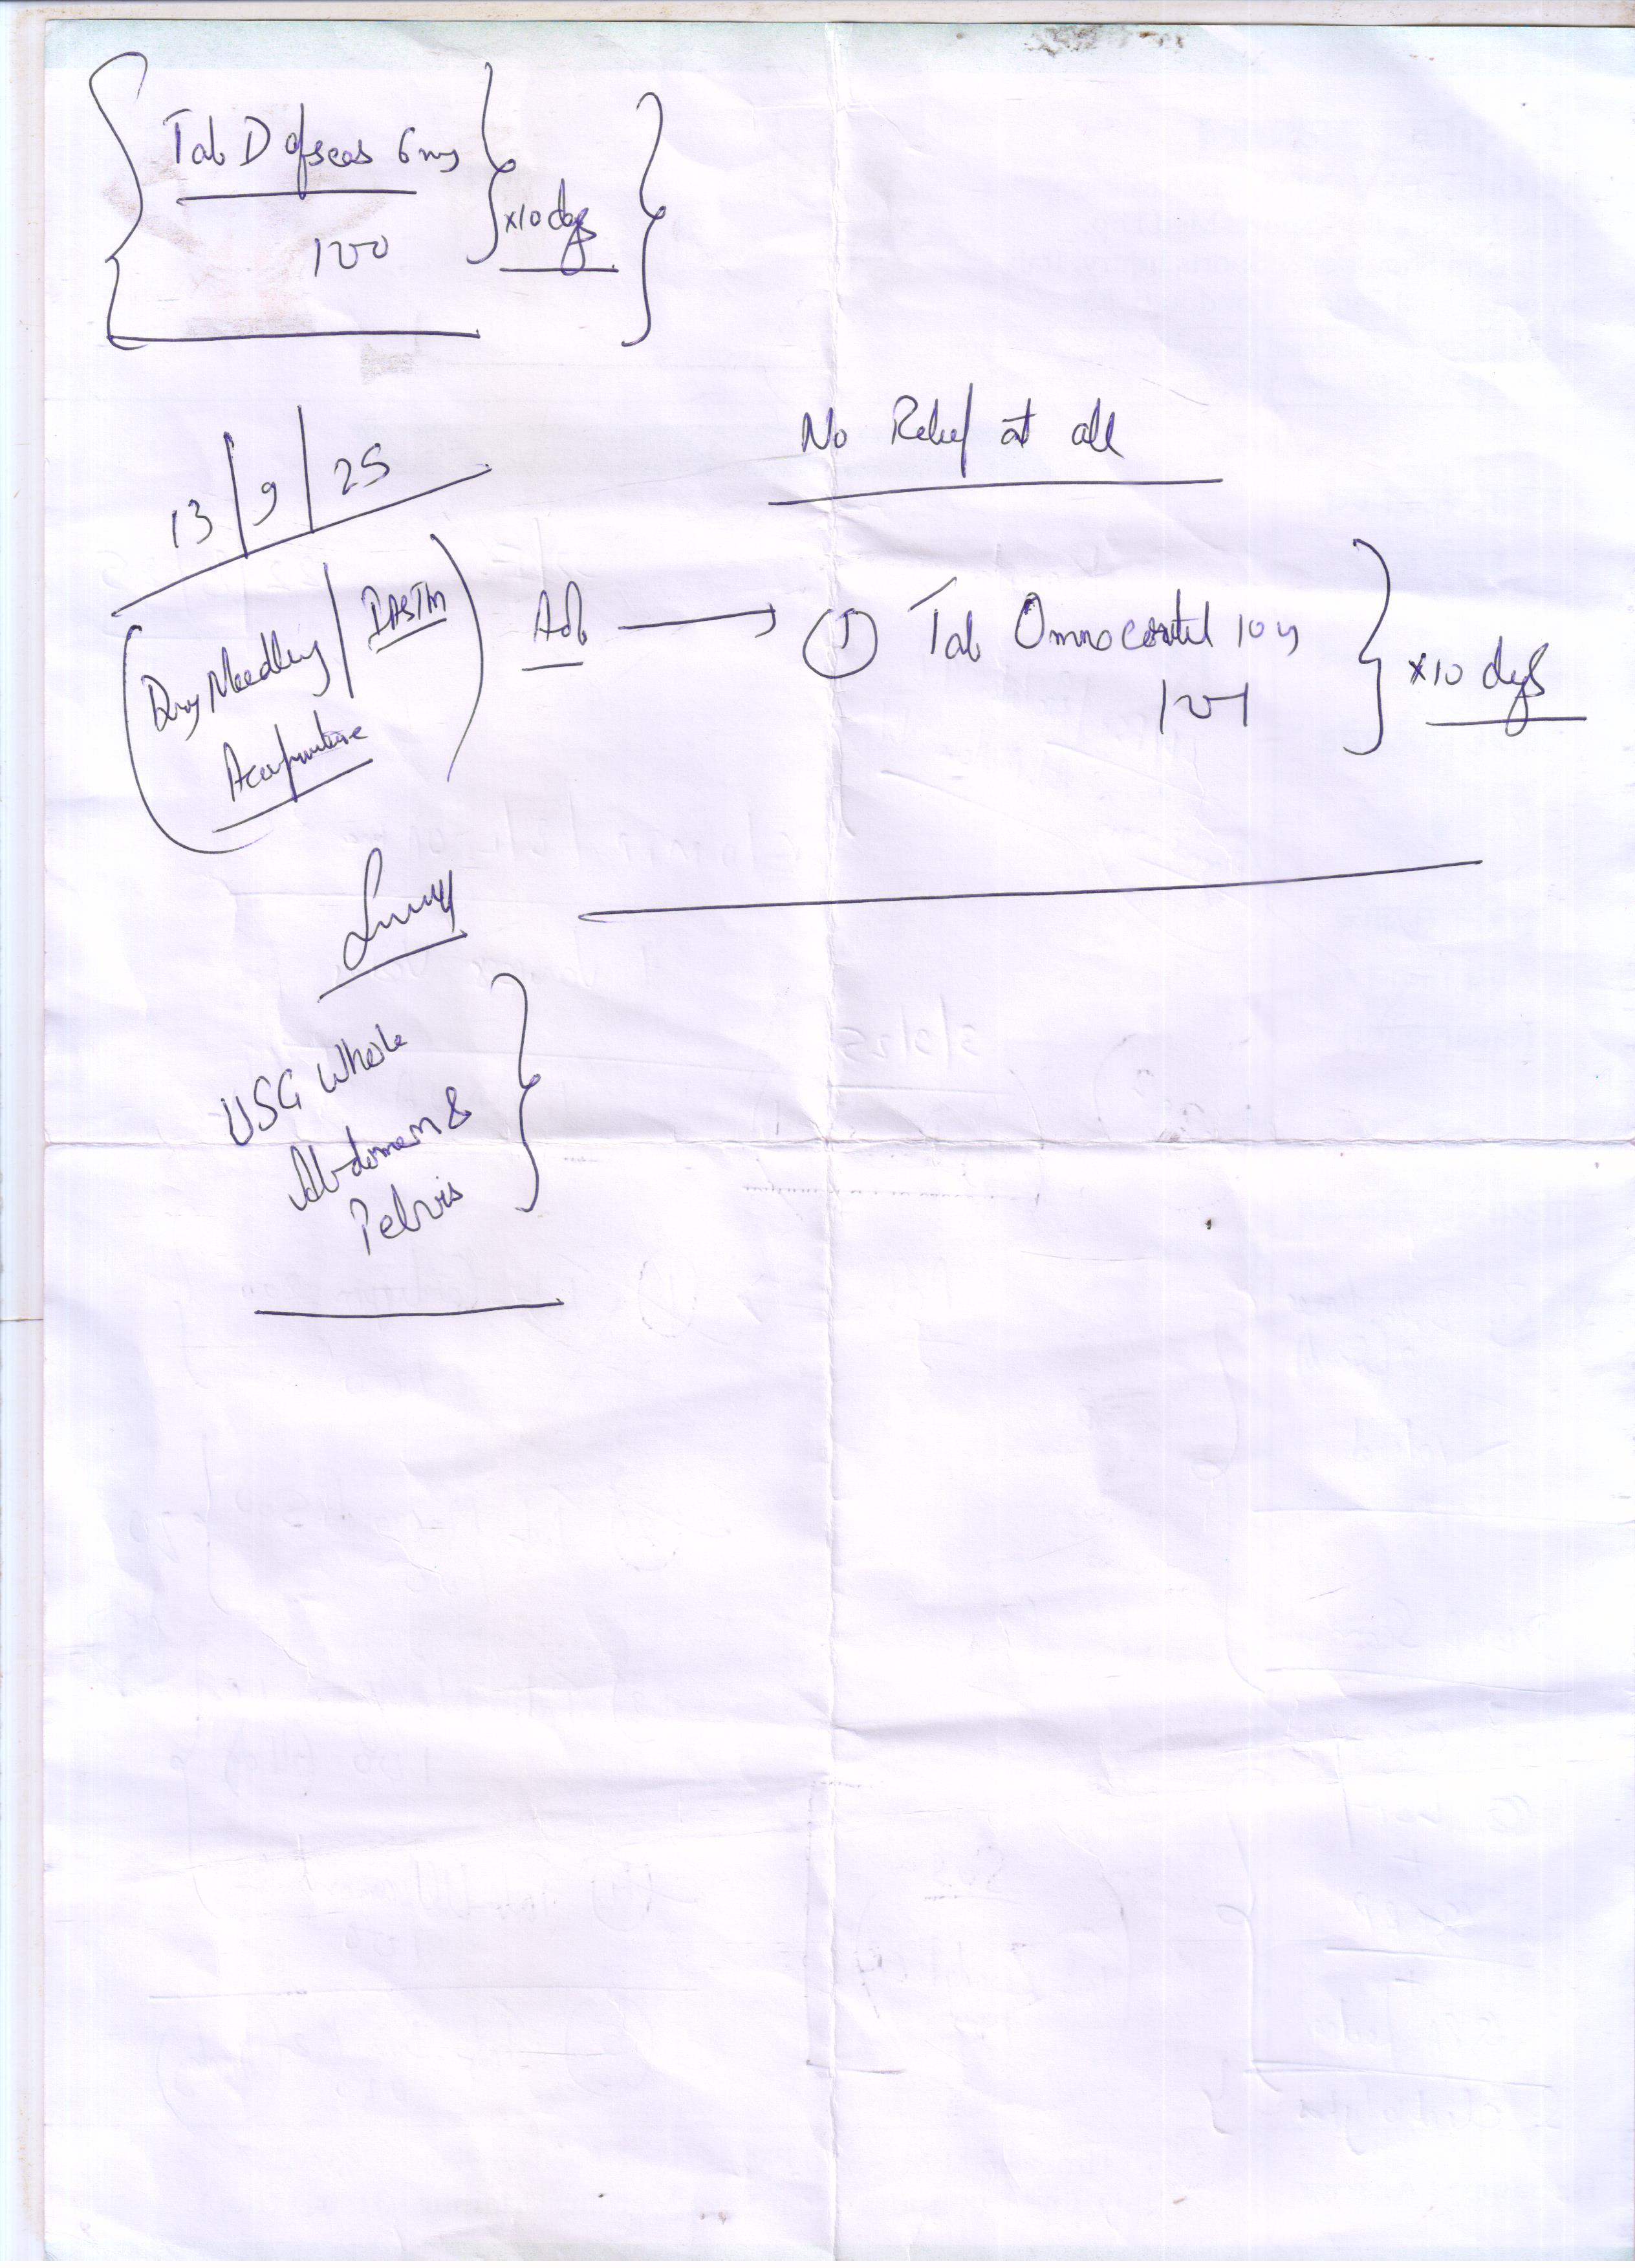 Tab Defscas 6mg
100
x10 days
No Relief at all
13/9/25
Dry Needling / IASTM
Acupuncture
Adv → ① Tab Omnacortil 10mg
101
x10 days
USG Whole
Abdomen &
Pelvis